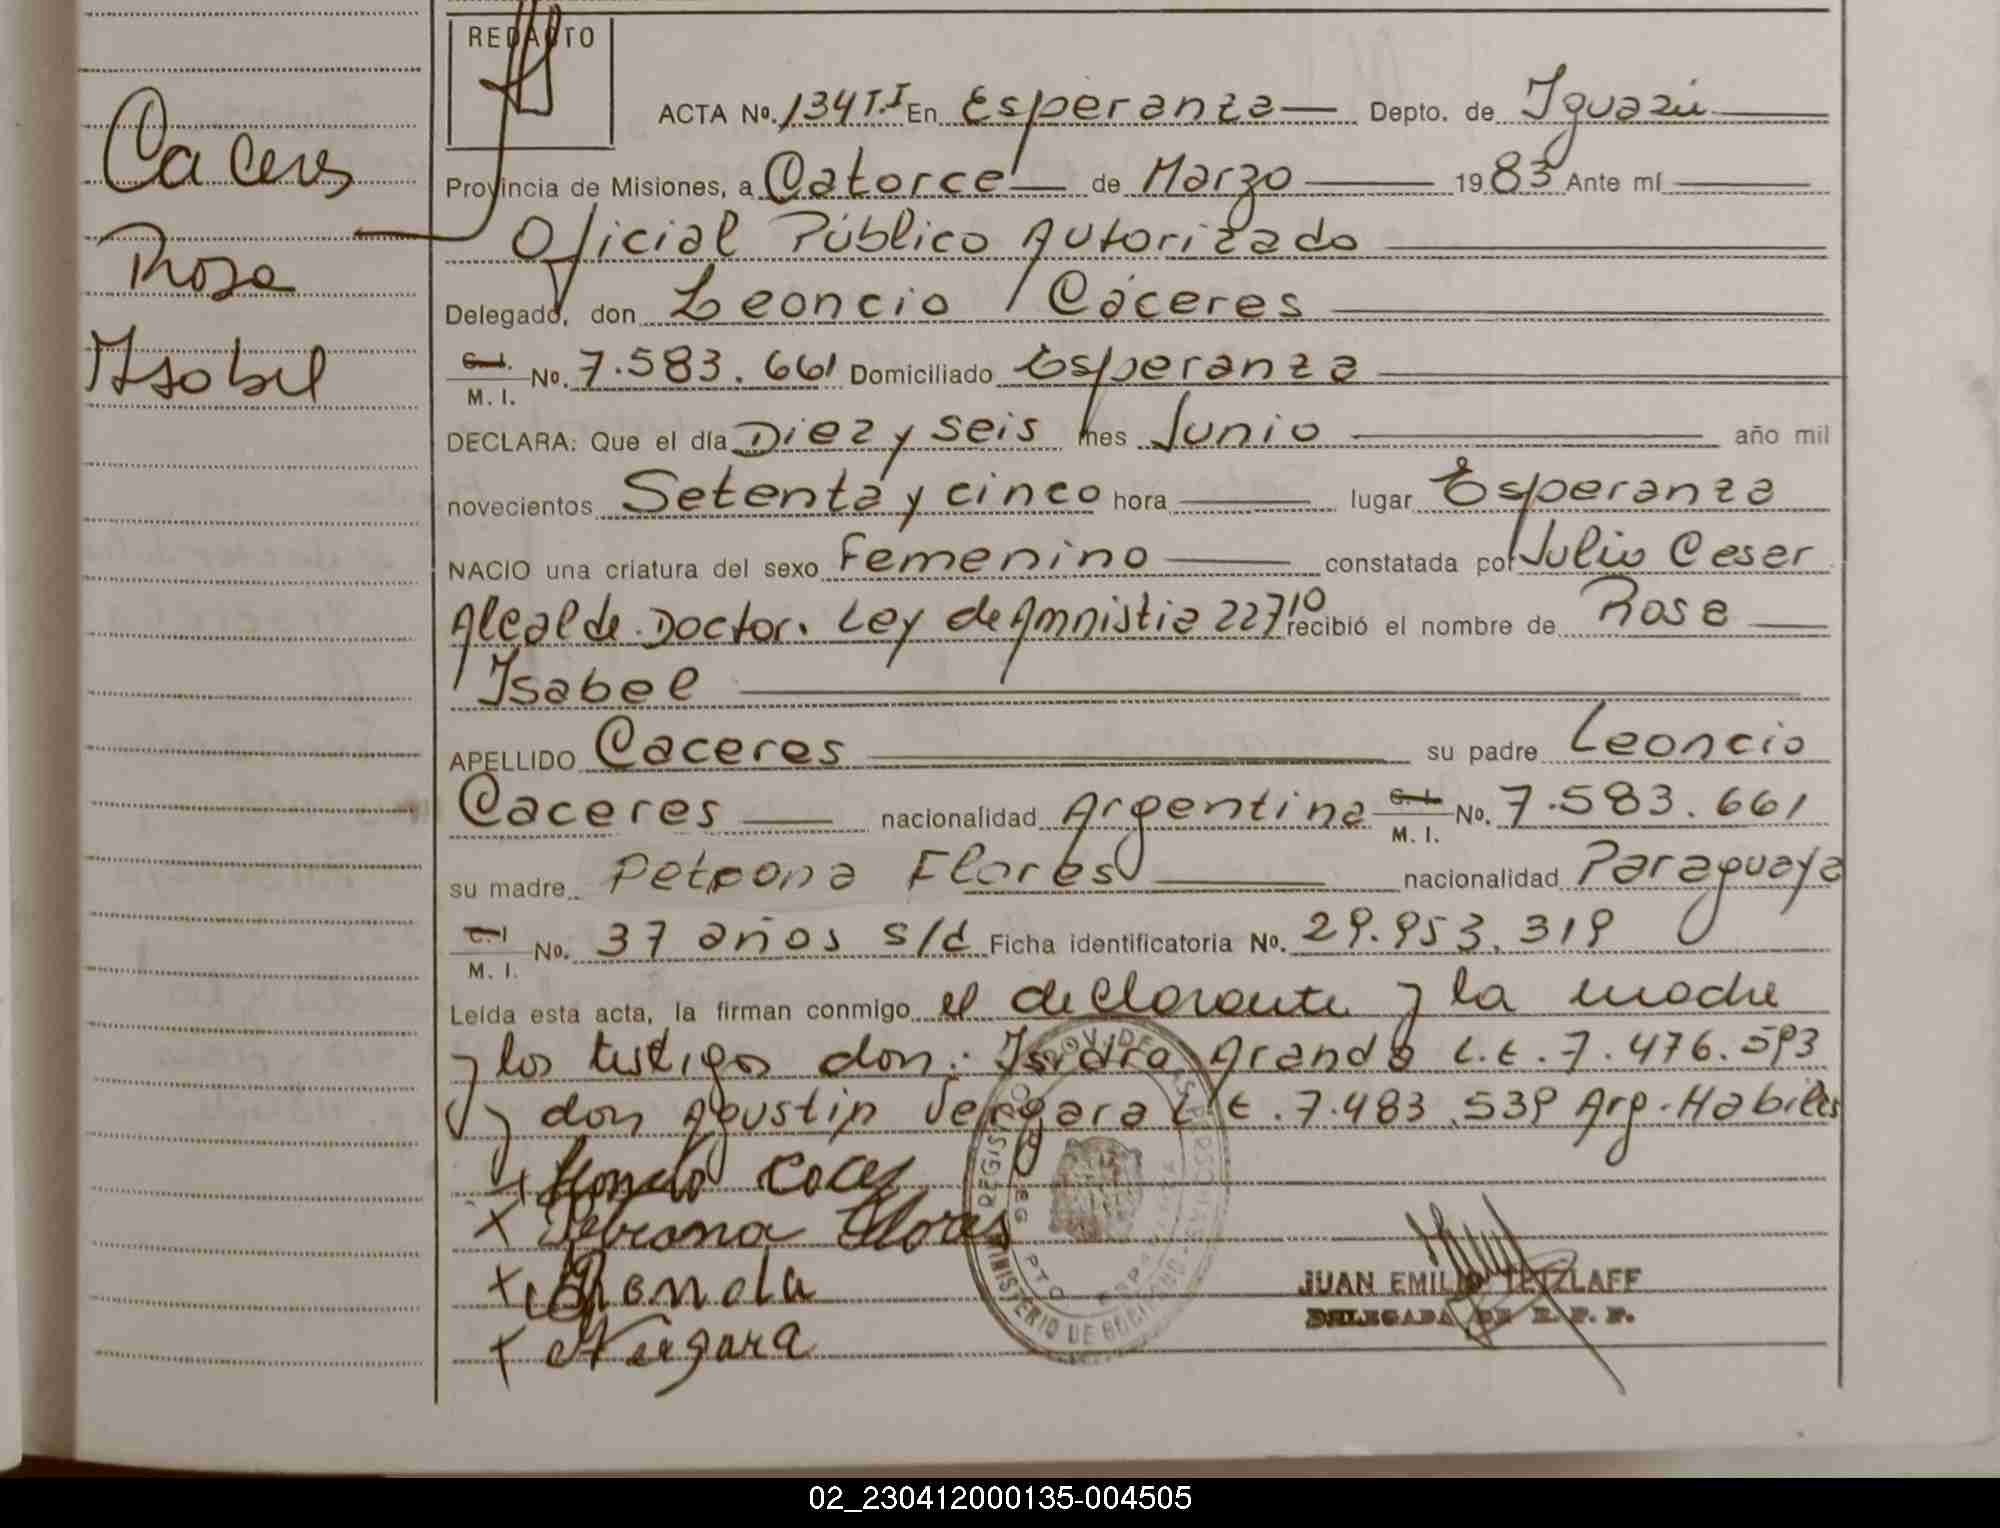 Caceres
Rosa
Ysabel
REDACTO
ACTA Nº. 134 T.I En Esperanza Depto. de Iguazú
Provincia de Misiones, a Catorce de Marzo 1983 Ante mí
Oficial Público Autorizado
Delegado, don Leoncio Cáceres
C.I. M. I. Nº. 7.583.661 Domiciliado Esperanza
DECLARA: Que el día Diez y seis mes Junio año mil
novecientos Setenta y cinco hora lugar Esperanza
NACIO una criatura del sexo Femenino constatada por Julio Cesar
Alcalde. Doctor. Ley de Amnistia 22710 recibió el nombre de Rosa
Isabel
APELLIDO Caceres su padre Leoncio
Caceres nacionalidad Argentina C.I. M. I. Nº. 7.583.661
su madre Petrona Flores nacionalidad Paraguaya
C.I M. I. Nº. 37 años s/d Ficha identificatoria Nº. 29.953.319
Leída esta acta, la firman conmigo el declarante y la madre
y los testigos don: Isidro Aranda L.E. 7.476.593
y don Agustin Vergara L.E. 7.483.539 Arg. Habiles
Petrona Flores
Vergara
REGISTRO PROV. DE LAS PERSONAS
MINISTERIO DE GOBIERNO
JUAN EMILIO TETZLAFF
DELEGADA DE R. P. P.
02_230412000135-004505